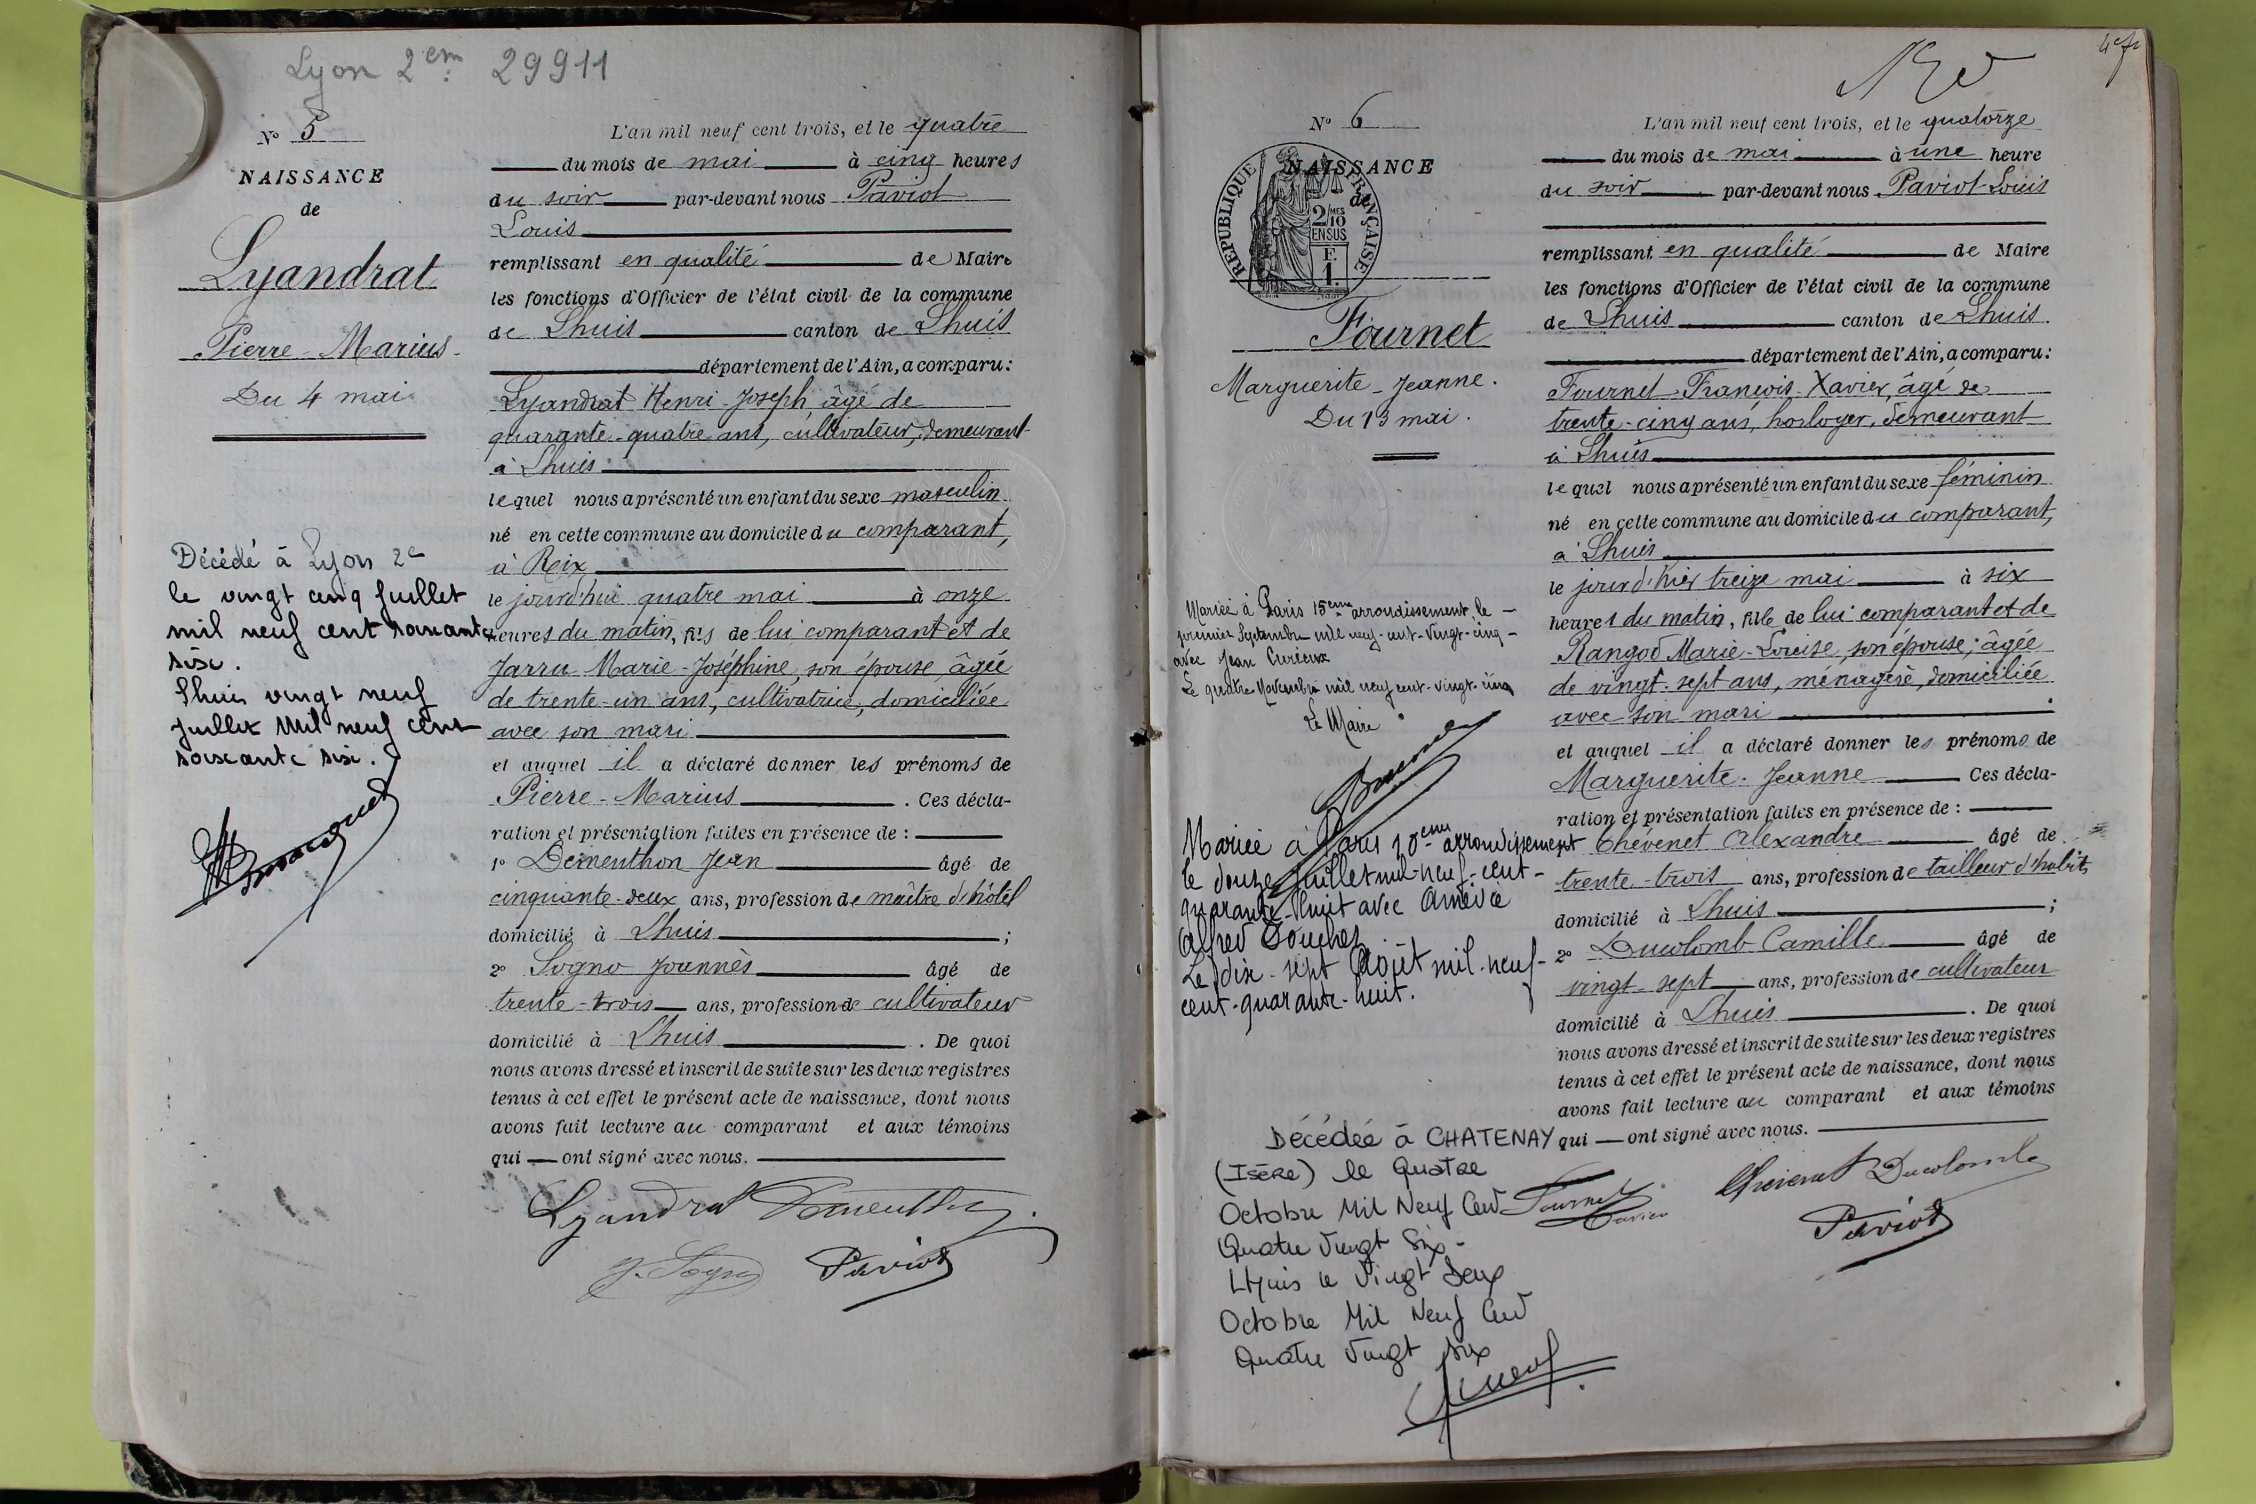 Lyon 2em 29911
No 5
NAISSANCE
de
Lyandrat
Pierre-Marius
Du 4 mai
Décédé à Lyon 2e
le vingt cinq Juillet
mil neuf cent soixante
six.
Lhuis vingt neuf
Juillet Mil neuf cent
soixante six.
L'an mil neuf cent trois, et le quatre
du mois de mai à cinq heures
du soir par-devant nous Paviot
Louis
remplissant en qualité de Maire
les fonctions d'Officier de l'état civil de la commune
de Lhuis canton de Lhuis
département de l'Ain, a comparu:
Lyandrat Henri-Joseph, âgé de
quarante-quatre ans, cultivateur, demeurant
à Lhuis
lequel nous a présenté un enfant du sexe masculin
né en cette commune au domicile du comparant,
à Rix
le jourd'hui quatre mai à onze
heures du matin, fils de lui comparant et de
Jarru Marie-Joséphine, son épouse, âgée
de trente-un ans, cultivatrice, domiciliée
avec son mari
et auquel il a déclaré donner les prénoms de
Pierre-Marius. Ces décla-
ration et présentation faites en présence de :
1o Dementhon Jean âgé de
cinquante-deux ans, profession de maître d'hôtel
domicilié à Lhuis ;
2o Sogno Joannès âgé de
trente-trois ans, profession de cultivateur
domicilié à Lhuis. De quoi
nous avons dressé et inscrit de suite sur les deux registres
tenus à cet effet le présent acte de naissance, dont nous
avons fait lecture au comparant et aux témoins
qui ont signé avec nous.
Lyandrat Dementhon
J. Sogno Paviot
No 6
NAISSANCE
de
REPUBLIQUE FRANÇAISE
2/10MES
EN SUS
F.
1.
Fournet
Marguerite-Jeanne.
Du 13 mai.
Mariée à Paris 15eme arrondissement le
premier Septembre mil neuf-cent-vingt-cinq
avec Jean Curieux
Le quatre Novembre mil neuf cent-vingt-cinq
Le Maire
Mariée à Paris 10eme arrondissement
le douze Juillet mil-neuf-cent-
quarante-huit avec Amédée
Alfred Bouchez
Le dix-sept Août mil-neuf-
cent-quarante-huit.
Décédée à CHATENAY
(Isère) le Quatre
Octobre Mil Neuf Cent
Quatre Vingt Six-
LHuis le Vingt Deux
Octobre Mil Neuf Cent
Quatre Vingt Six
L'an mil neuf cent trois, et le quatorze
du mois de mai à une heure
du soir par-devant nous Paviot Louis
remplissant en qualité de Maire
les fonctions d'Officier de l'état civil de la commune
de Lhuis canton de Lhuis
département de l'Ain, a comparu:
Fournet François-Xavier, âgé de
trente-cinq ans, horloger, demeurant
à Lhuis
lequel nous a présenté un enfant du sexe féminin
né en cette commune au domicile du comparant,
à Lhuis
le jour d'hier treize mai à six
heures du matin, fille de lui comparant et de
Rangod Marie-Louise, son épouse, âgée
de vingt-sept ans, ménagère, domiciliée
avec son mari
et auquel il a déclaré donner les prénoms de
Marguerite-Jeanne Ces décla-
ration et présentation faites en présence de :
Chévenet Alexandre âgé de
trente-trois ans, profession de tailleur d'habits
domicilié à Lhuis ;
2o Ducolomb Camille âgé de
vingt-sept ans, profession de cultivateur
domicilié à Lhuis. De quoi
nous avons dressé et inscrit de suite sur les deux registres
tenus à cet effet le présent acte de naissance, dont nous
avons fait lecture au comparant et aux témoins
qui ont signé avec nous.
Fournet Xavier Chévenet Ducolomb
Paviot